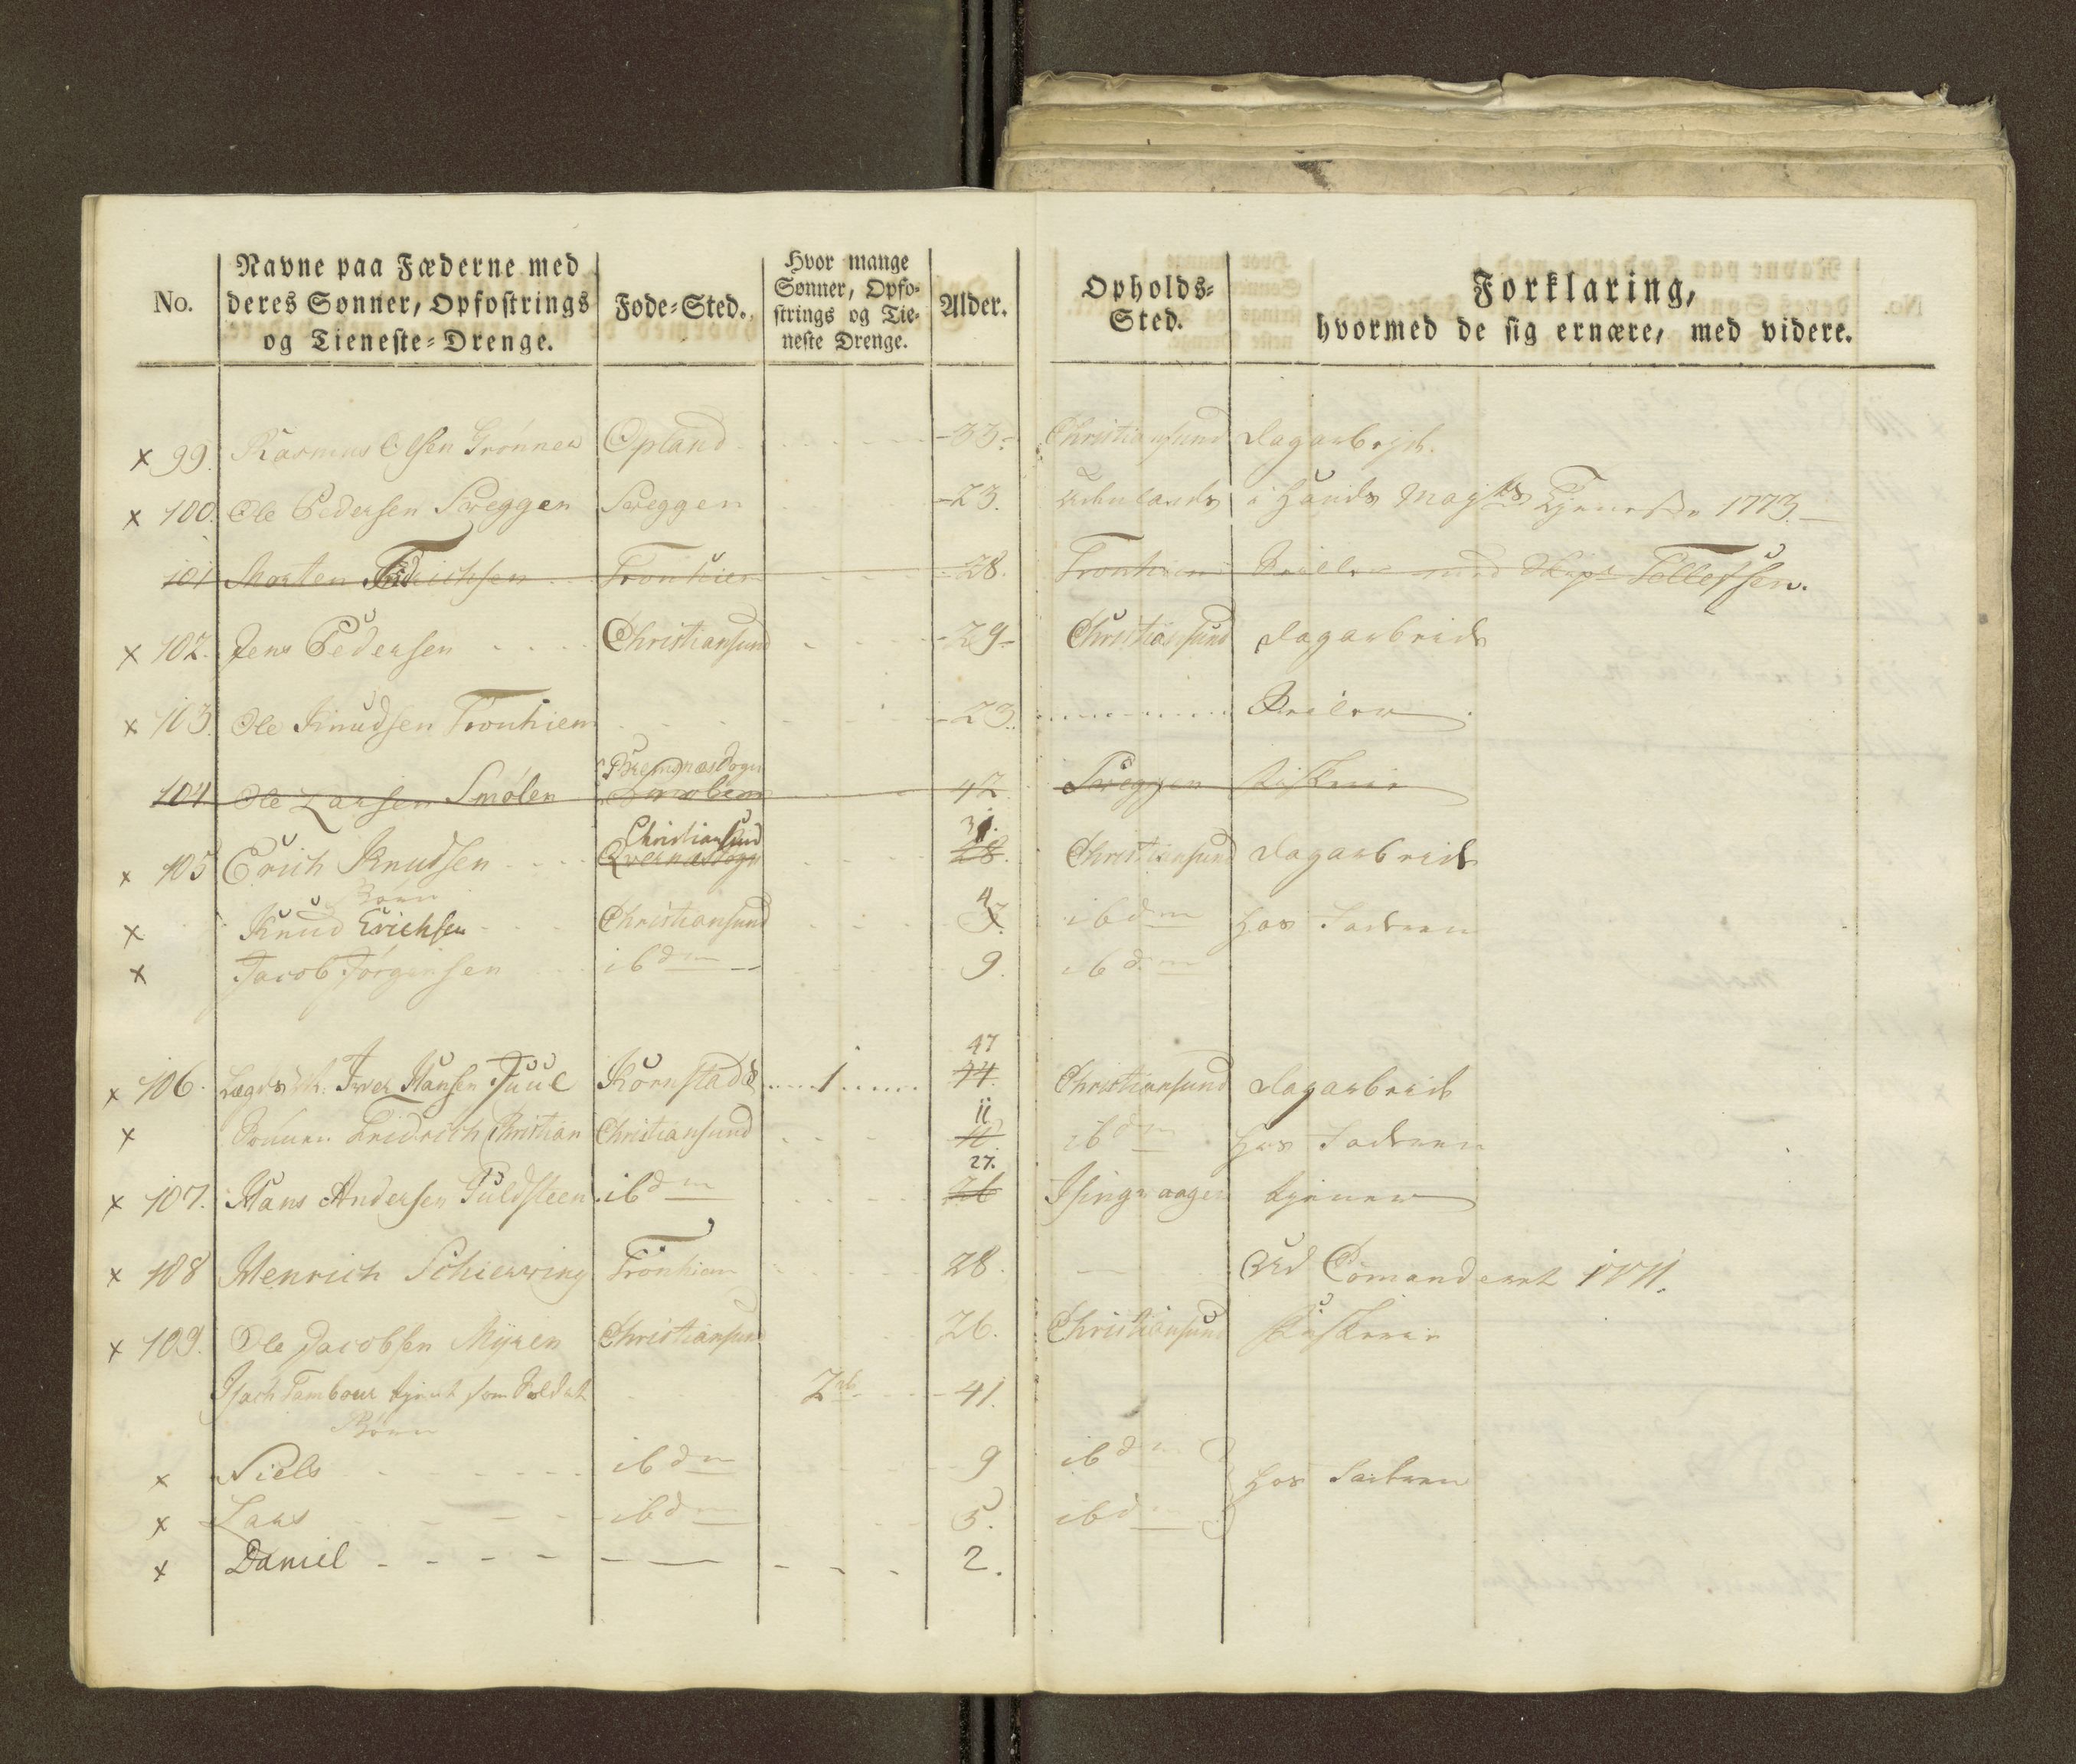 No. | Navne paa Fæderne med deres Sønner, Opfostrings og Tieneste-Drenge. | Fode-Sted. | Hvor mange Sønner, Opfostrings og Tieneste Drenge. | Alder. | Opholds-Sted. | Forklaring, hvormed de sig ernære, med videre.
x 99. Rasmus Olsen Grønner | Opland | 33. | Christiansund | Dagarbejd.
x 100. Ole Pedersen Sweggen | Sweggen | 23. | Udenlands | i Hands Majts Tjeneste 1773.
101 Morten Fridrichsen | Tronhiem | 28. | Tronhiem | med Skipr Tellefsen.
x 102. Jens Pedersen | Christiansund | 29 | Christiansund | Dagarbeid
x 103. Ole Knudsen Tronhiem | 23.
104 Ole Larsen Smølen | 42 | Sweggen | Fiskerie
x 105 Erich Knudsen | Christiansund | 31. 28. | Christiansund | Dagarbeid
Børn
x Knud Erichsen | Christiansund | 4 3. | ibdm | hos Faderen
x Jacob Jørgensen | ibdm | 9. | ibdm
x 106. Iver Hansen Juul | Kornstads | 1 | 47 44. | Christiansund | Dagarbeid
x Sønnen Fridrich Christian | Christiansund | 11 | ibdm | hos Faderen
x 107. Hans Andersen Guldsteen | ibdm | 27. 26 | Isingvaagen | tjener
x 108 Henrich Schierwing | Tronhiem | 28. | Ud Comanderet 1771.
x 109. Ole Jacobsen Myren | Christiansund | 26. | Christiansund | Fiskerie
Isach Tambour tjent som Soldat | 2 | 41.
Børn
x Niels | ibdm | 9 | ibdm | hos Faderen
x Lars | ibdm | 5. | ibdm
x Daniel | 2.